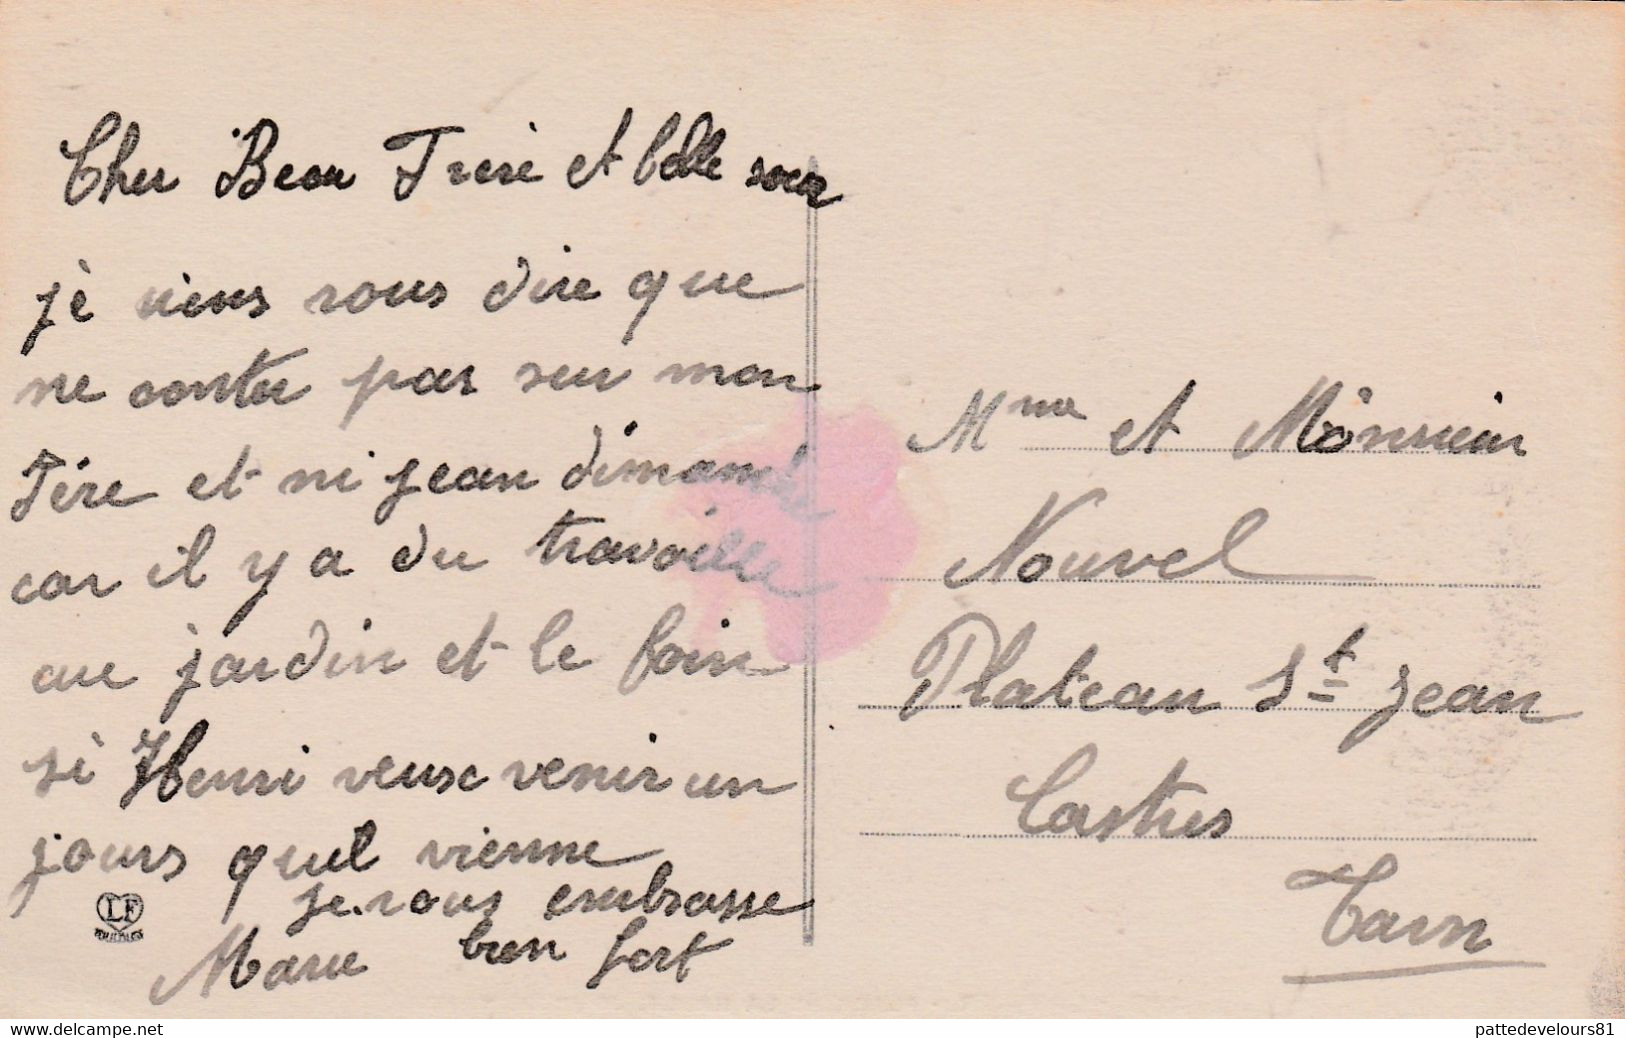 Cher Beau Frere et belle soeur
je viens vous dire que
ne conter pas sur mon
Père et ni jean dimanche
car il y a du travaille
au jardin et le foin
si Henri veux venir un
jours quil vienne
je vous embrasse
Marie bien fort
LF
Mme et Monsieur
Nouvel
Plateau St jean
Castres
Tarn
delcampe.net
pattedevelours81